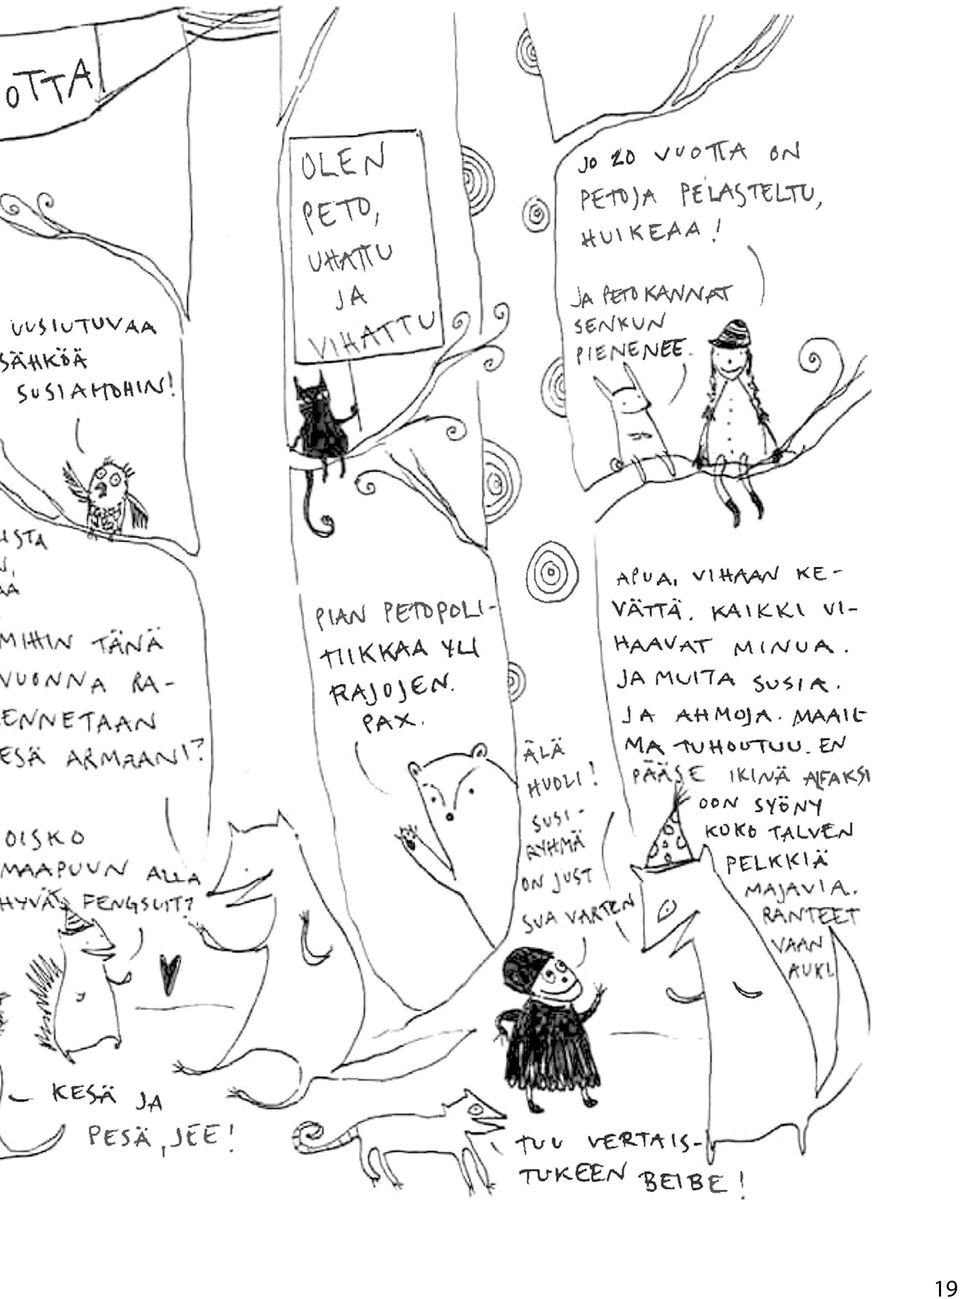 OTTA
OLEN
PETO,
UHATTU
JA
VIHATTU
JO 20 VUOTTA ON
PETOJA PELASTELTU,
HUIKEAA!
JA PETOKANNAT
SENKUN
PIENENEE.
UUSIUTUVAA
SÄHKÖÄ
SUSIAITOIHIN!
MIHIN TÄNÄ
VUONNA RA-
ENNETAAN
ESÄ ARMAANI?
PIAN PETOPOLI-
TIIKKAA YLI
RAJOJEN.
PAX.
APUA, VIHAAN KE-
VÄTTÄ. KAIKKI VI-
HAAVAT MINUA.
JA MUITA SUSIA.
JA AHMOJA. MAAIL-
MA TUHOUTUU. EN
PÄÄSE IKINÄ ALFAKSI
OON SYÖNY
KOKO TALVEN
PELKKIÄ
MAJAVIA.
RANTEET
VAAN
AUKI.
ÄLÄ
HUOLI!
SUSI-
RYHMÄ
ON JUST
SUA VARTEN
OISKO
MAAPUUN ALLA
HYVÄT FENGSUIT?
KESÄ JA
PESÄ, JEE!
TUU VERTAIS-
TUKEEN BEIBE!
19